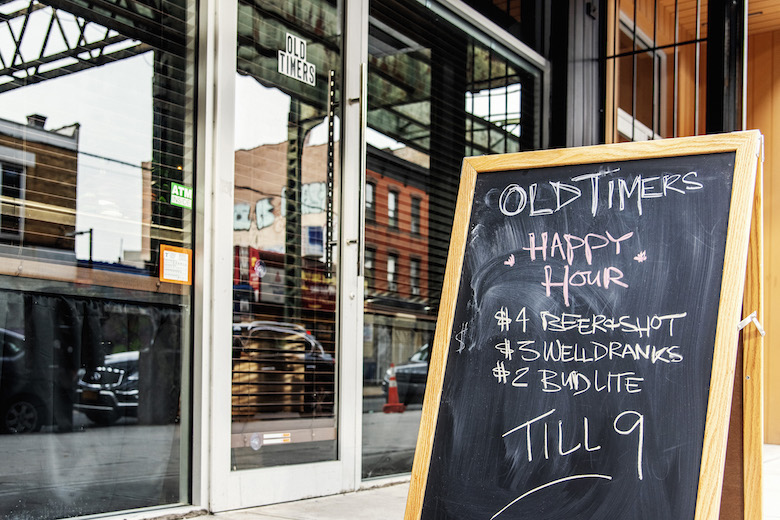 OLD
TIMERS
ATM
OLD TIMERS
HAPPY
HOUR
$4 BEER & SHOT
$3 WELL DRANKS
$2 BUD LITE
TILL 9